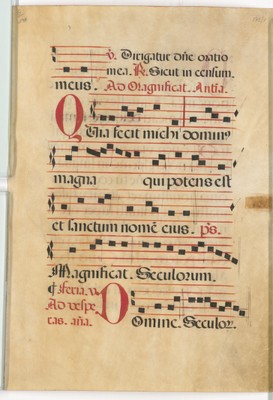 ℣. Dirigatur dñe oratio
mea. ℟. Sicut in censum.
meus. Ad Magnificat. Antĩa.
QUia fecit michi dominꝰ
magna qui potens est
et sanctum nomẽ eius. ps.
Magnificat. Seculorum.
¶ Feria. v.
Ad vespe
ras. aña. Domine. Seculoꝝ.